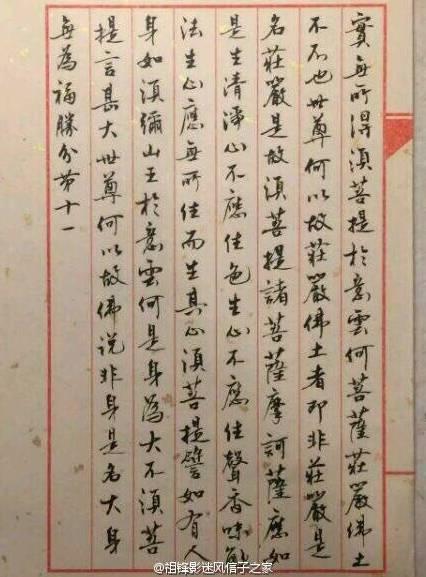 實無所得湏菩提於意雲何菩薩莊嚴佛土
不不也世尊何以故莊嚴佛土者即非莊嚴是
名莊嚴是故湏菩提諸菩薩摩訶薩應如
是生清淨心不應住色生心不應住聲香味觸
法生心應無所住而生其心湏菩提譬如有人
身如湏彌山王於意雲何是身為大不湏菩
提言甚大世尊何以故佛说非身是名大身
無為福勝分第十一
@祖锋影迷风信子之家